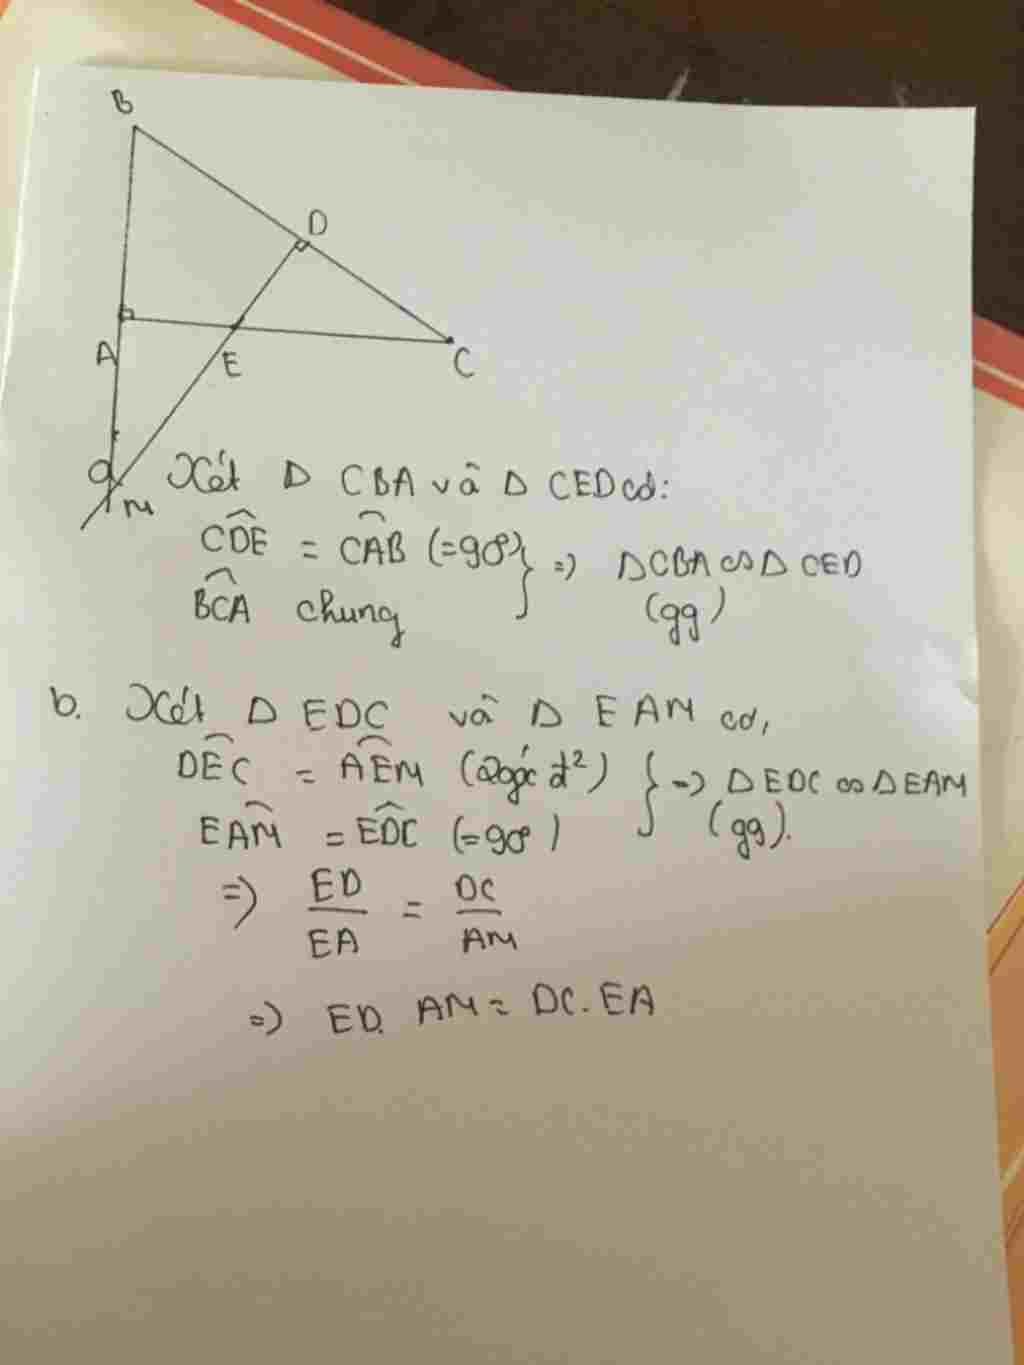 B
D
A
E
C
a
M
Xét Δ CBA và Δ CED có:
CDE = CAB (=90°)
BCA chung
} => ΔCBA ∽ Δ CED
(gg)
b. Xét Δ EDC và Δ EAM có,
DEC = AEM (2góc đ²)
EAM = EDC (=90°)
} => Δ EDC ∽ Δ EAM
(gg).
=> ED/EA = DC/AM
=> ED. AM = DC. EA